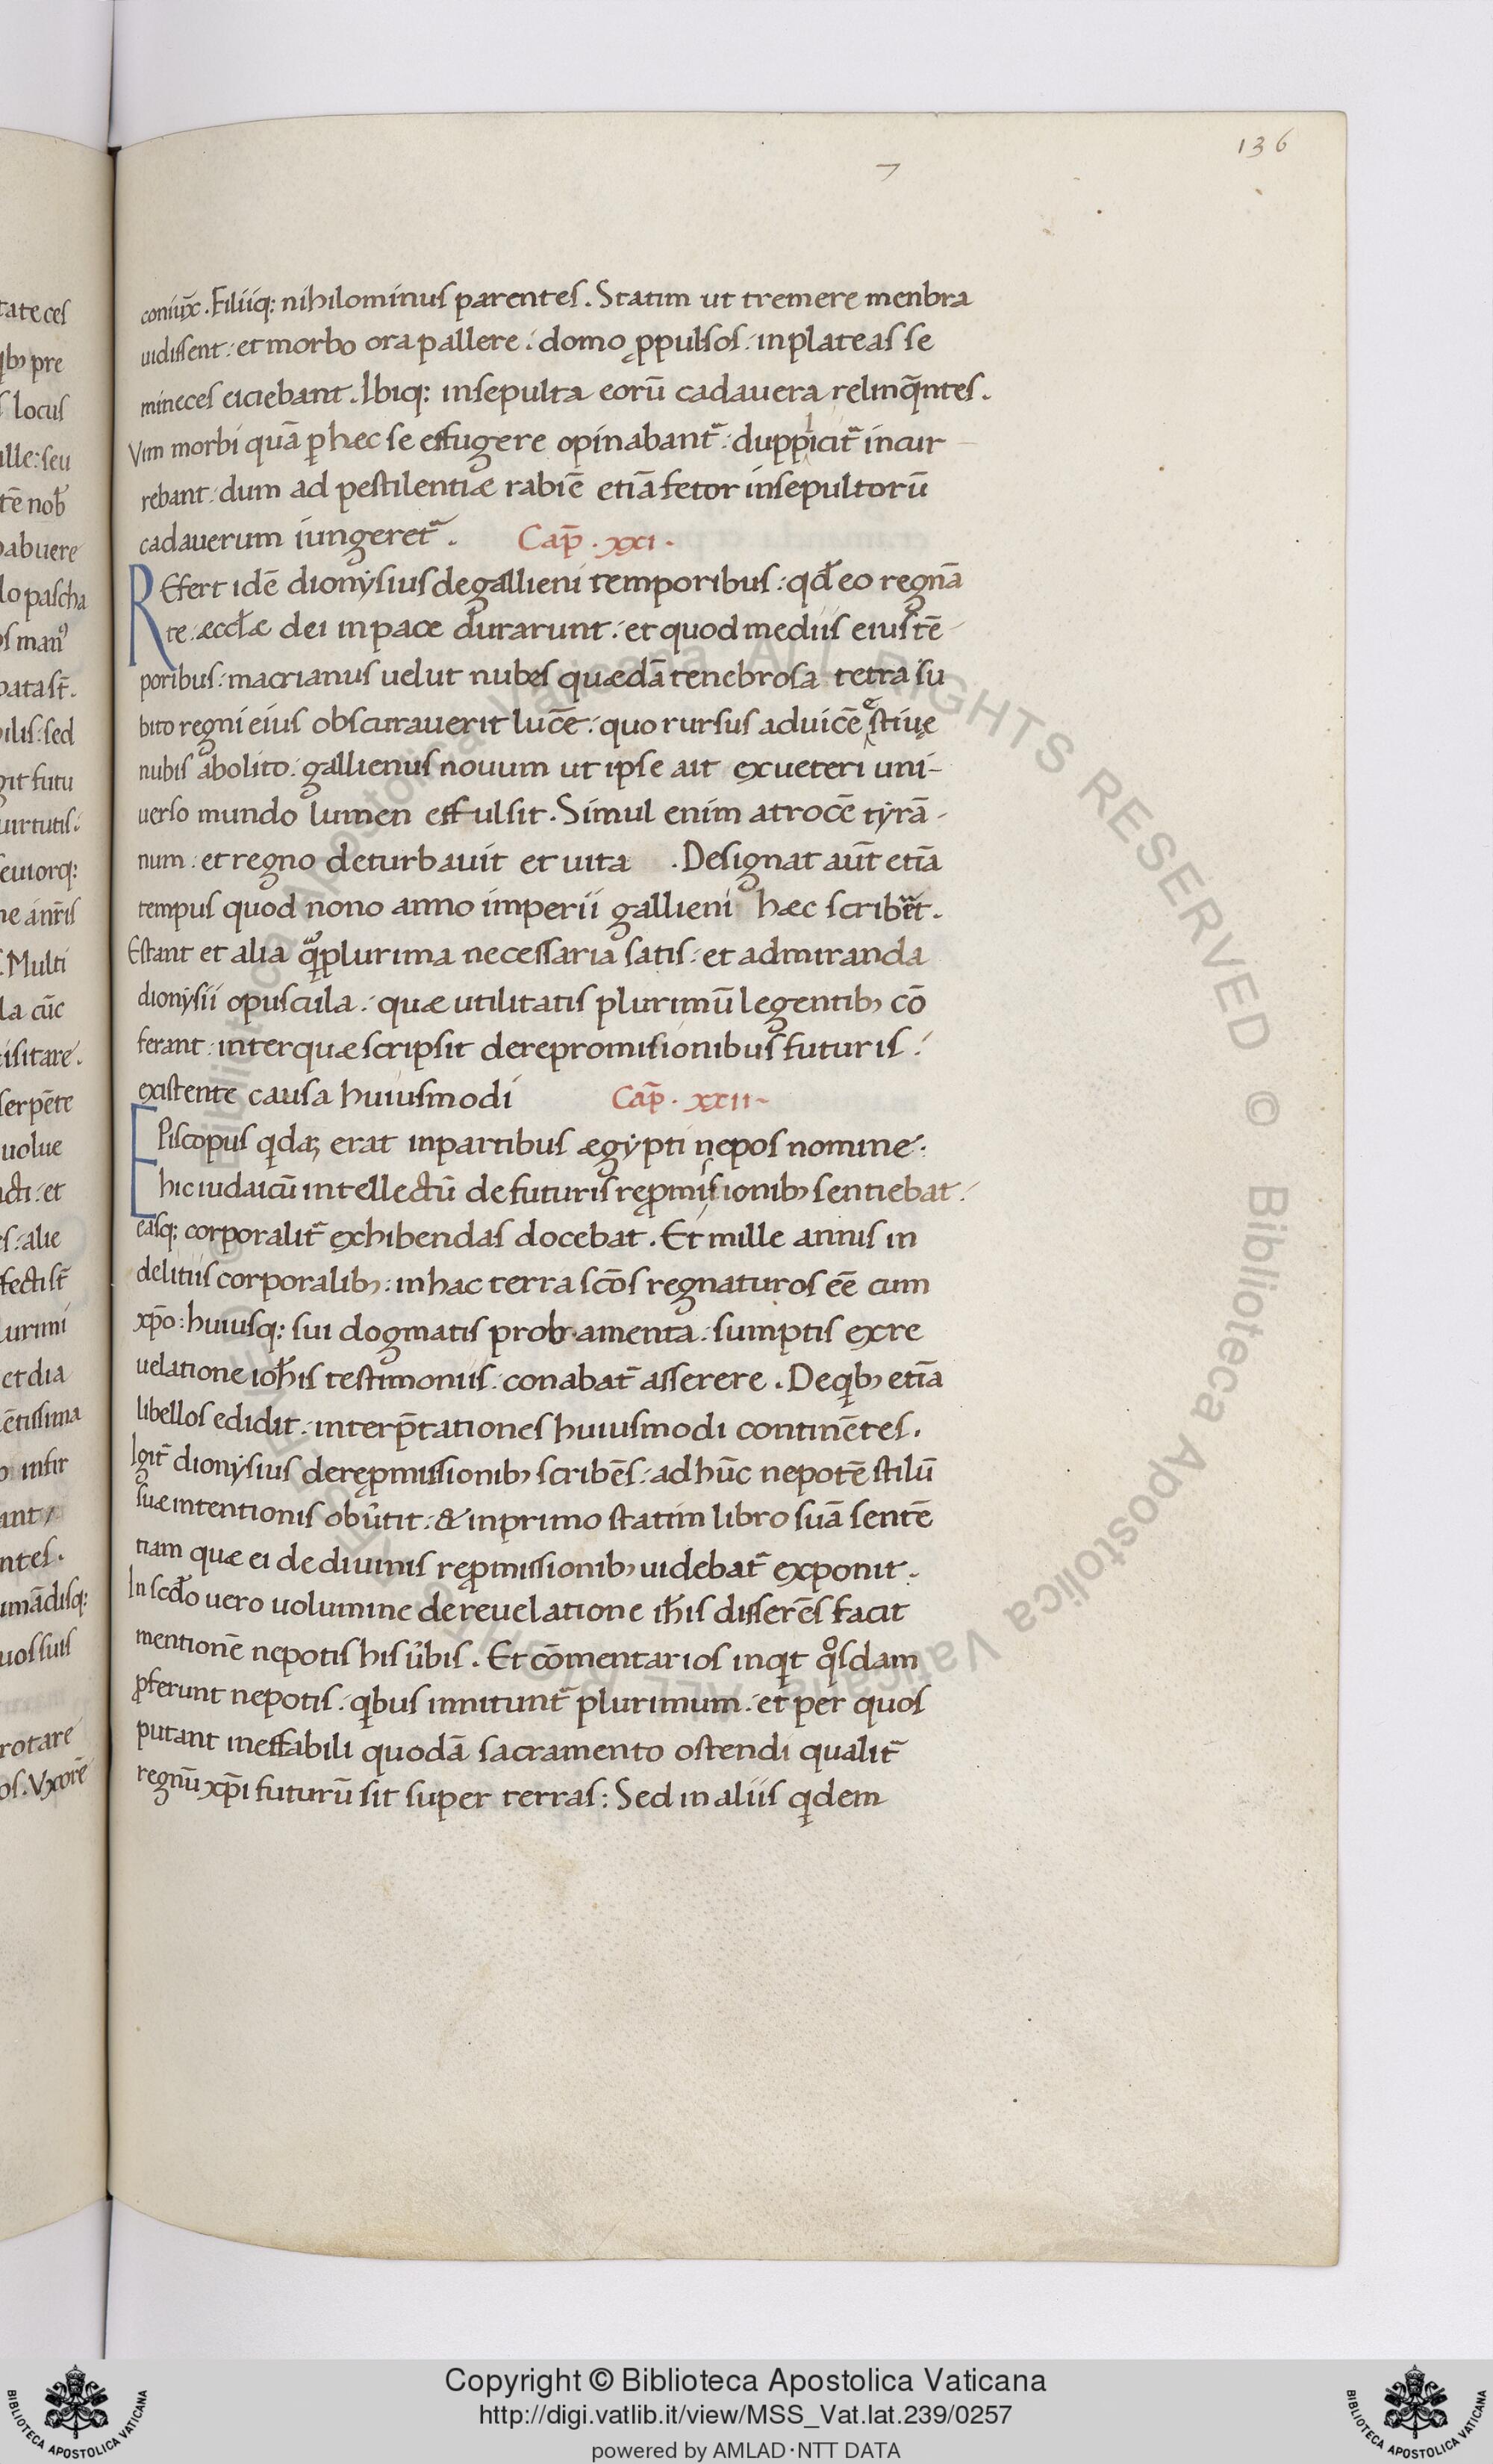 136
tate ces
qb; pre
s locus
ille: seu
tē nob̄
habuere
lo pascha
os man᾽
pata st̄.
bilis: sed
git futu
uirtutis.
seuiorq:
ne ānr̄is
. Multi
la cūc
uisitare.
serpēte
uolue
acti. et
es: alie
fecti st̄
lurimi
et dia
ētissima
o infir
ant
ntes.
umādisq:
uos suis
rotare
os. Vxorē
coniūx. Filiiq: nihilominus parentes. Statim ut tremere menbra
uidissent: et morbo ora pallere: domo ꝓpulsos: in plateas se
mineces eiciebant. Ibiq: insepulta eorū cadauera relinq̄ntes.
Vim morbi quā ꝑ haec se effugere opinabant᷑: dupplicit᷑ incur
rebant: dum ad pestilentiæ rabiē etiā fetor insepultorū
cadauerum iungeret᷑. Cap̄. xxi.
REfert idē dionẏsius de gallieni temporibus: qđ eo regnā
te: æccłæ dei in pace durarunt: et quod mediis eius tē
poribus: macrianus uelut nubes quædā tenebrosa tetra su
bito regni eius obscurauerit lucē: quo rursus ad uicē estiuę
nubis abolito: gallienus nouum ut ipse ait ex ueteri uni-
uerso mundo lumen effulsit. Simul enim atrocē tẏrā-
num: et regno deturbauit et uita . Designat aūt etiā
tempus quod nono anno imperii gallieni hæc scribͣet.
Estant et alia qͣꝑplurima necessaria satis: et admiranda
dionẏsii opuscula: quæ utilitatis plurimū legentib; cō
ferant: inter quæ scripsit de repromisionibus futuris:
existente causa huiusmodi Cap̄. xxii
EPiscopus qdaꝫ erat in partibus ægẏpti nepos nomine:
hic iudaicū intellectū de futuris reꝓmissionib; sentiebat:
easq: corporalit᷑ exhibendas docebat. Et mille annis in
delitiis corporalib;: in hac terra sc̄os regnaturos eē cum
xp̄o: huiusq: sui dogmatis probramenta: sumptis ex re
uelatione ioh̄is testimoniis: conabat᷑ asserere. De qb; etiā
libellos edidit: interp̄tationes huiusmodi continētes.
Igit᷑ dionẏsius de reꝓmissionib; scribēs: ad hūc nepotē stilū
suæ intentionis obūtit: & in primo statim libro suā sentē
tiam quæ ei de diuinis reꝓmissionib; uidebat᷑ exponit.
In scđo uero uolumine de reuelatione ih̄is disserēs facit
mentionē nepotis his ūbis. Et cōmentarios inqt qͦsdam
ꝓferunt nepotis: qbus innitunt᷑ plurimum: et per quos
putant ineffabili quodā sacramento ostendi qualit᷑
regnū xp̄i futurū sit super terras: Sed in aliis qdem
Copyright © Biblioteca Apostolica Vaticana
http://digi.vatlib.it/view/MSS_Vat.lat.239/0257
powered by AMLAD·NTT DATA